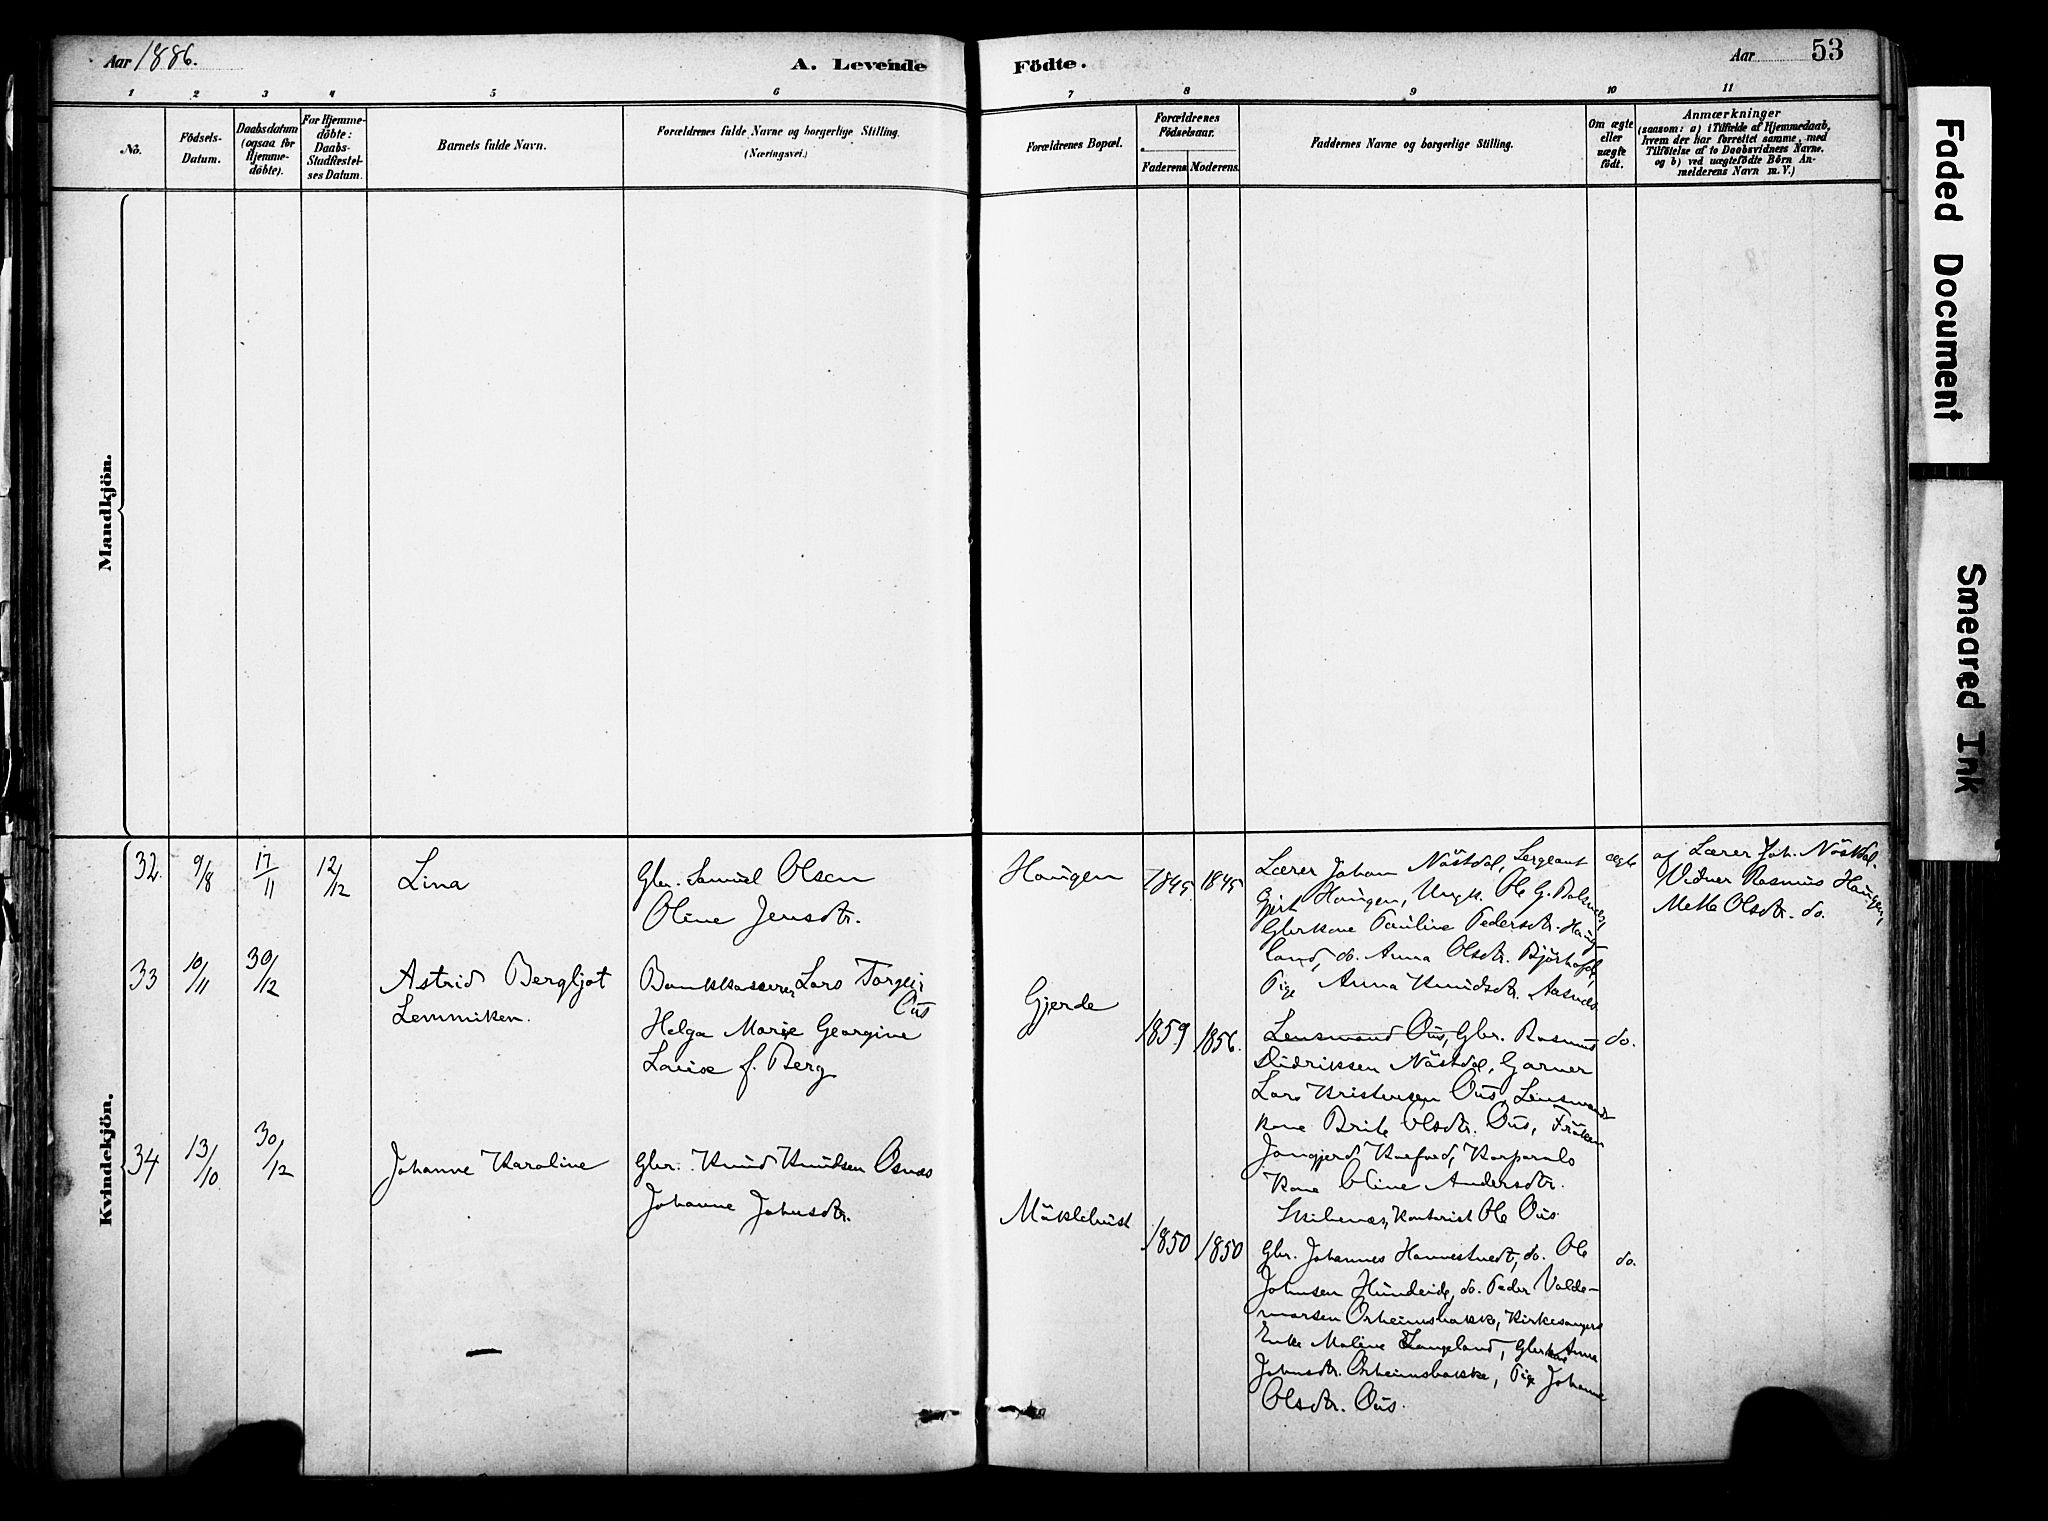 Aar 1886.
A. Levende Födte.
Aar 53
1 2 3 4 5 6 7 8 9 10 11
No.
Födsels-Datum.
Daabsdatum (ogsaa for Hjemme-döbte).
For Hjemme-döbte: Daabs-Stadfæstel-ses Datum.
Barnets fulde Navn.
Forældrenes fulde Navne og borgerlige Stilling.
(Næringsvei.)
Forældrenes Bopæl.
Forældrenes Födselsaar.
Faderens Moderens.
Faddernes Navne og borgerlige Stilling.
Om ægte eller uægte födt.
Anmærkninger
(saasom: a) i Tilfælde af Hjemmedaab,
hvem der har forrettet samme, med
Tilföielse af to Daabsvidners Navne,
og b) ved uægtefödte Börn An-
melderens Navn m. V.)
Mandkjön.
Kvindekjön.
32. 9/8 17/11 12/12
Lina
Gbr. Samuel Olsen
Oline Jensdtr.
Haugen
1845 1845
Lærer Johan Nöstdal, Sergeant
Gjert Haugen, Ungk. Ole G.
Gbrkone Pauline Pedersdtr. Haug-
land, do. Anna Olsdtr.
Pige Anna Knudsdtr. Aasnes
ægte
af Lærer Joh. Nöstdal.
Vidner Rasmus Haugen,
Mette Olsdtr. do.
33 10/11 30/12
Astrid Bergljot
Lemmiken.
Bankkasserer Lars Torgeir
Ous
Helga Marie Georgine
Louise f. Berg
Gjerde
1859 1856.
Lensmand Ous, Gbr. Rasmus
Didriksen Nöstdal, Garver
Lars Kristensen Ous, Lensmands
kone Brite Olsdtr. Ous, Fröken
kone Oline Andersdtr.
Kontorist Ole Ous
do.
34 13/10 30/12
Johanne Karoline
Gbr. Knud Knudsen Osnes
Johanne Johnsdtr.
Möklebust
1850 1850
Gbr. Johannes do. Ole
Johnsen Hundeide, do. Peder Valde-
marsen Orheimsbakke, Kirkesangers
Enke Maline Langeland, Gbrkone Anna
Johnsdtr. Orheimsbakke, Pige Johanne
Olsdtr. Ous.
do.
Faded Document
Smeared Ink